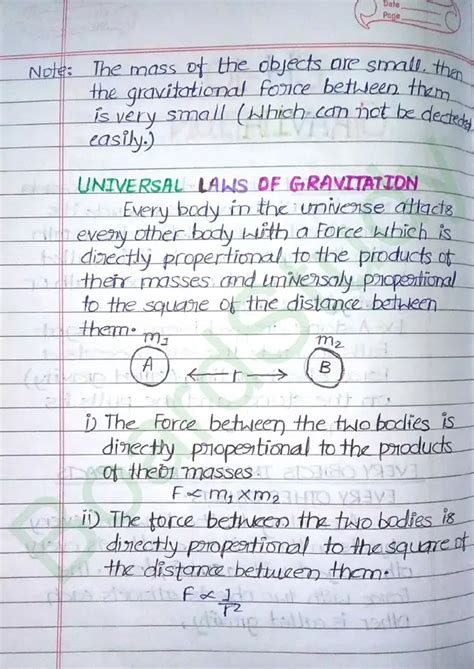 Date
Page
Note: The mass of the objects are small, then
the gravitational force between them
is very small (which can not be dectected
easily.)
UNIVERSAL LAWS OF GRAVITATION
Every body in the universe attacts
every other body with a force which is
directly propertional to the products of
their masses and universaly propertional
to the square of the distance between
them.
m₁ m₂
A ← r → B
i) The Force between the two bodies is
directly propertional to the products
of their masses.
F ∝ m₁ × m₂
ii) The force between the two bodies is
directly propertional to the square of
the distance between them.
F ∝ 1/r²
BoardStudy